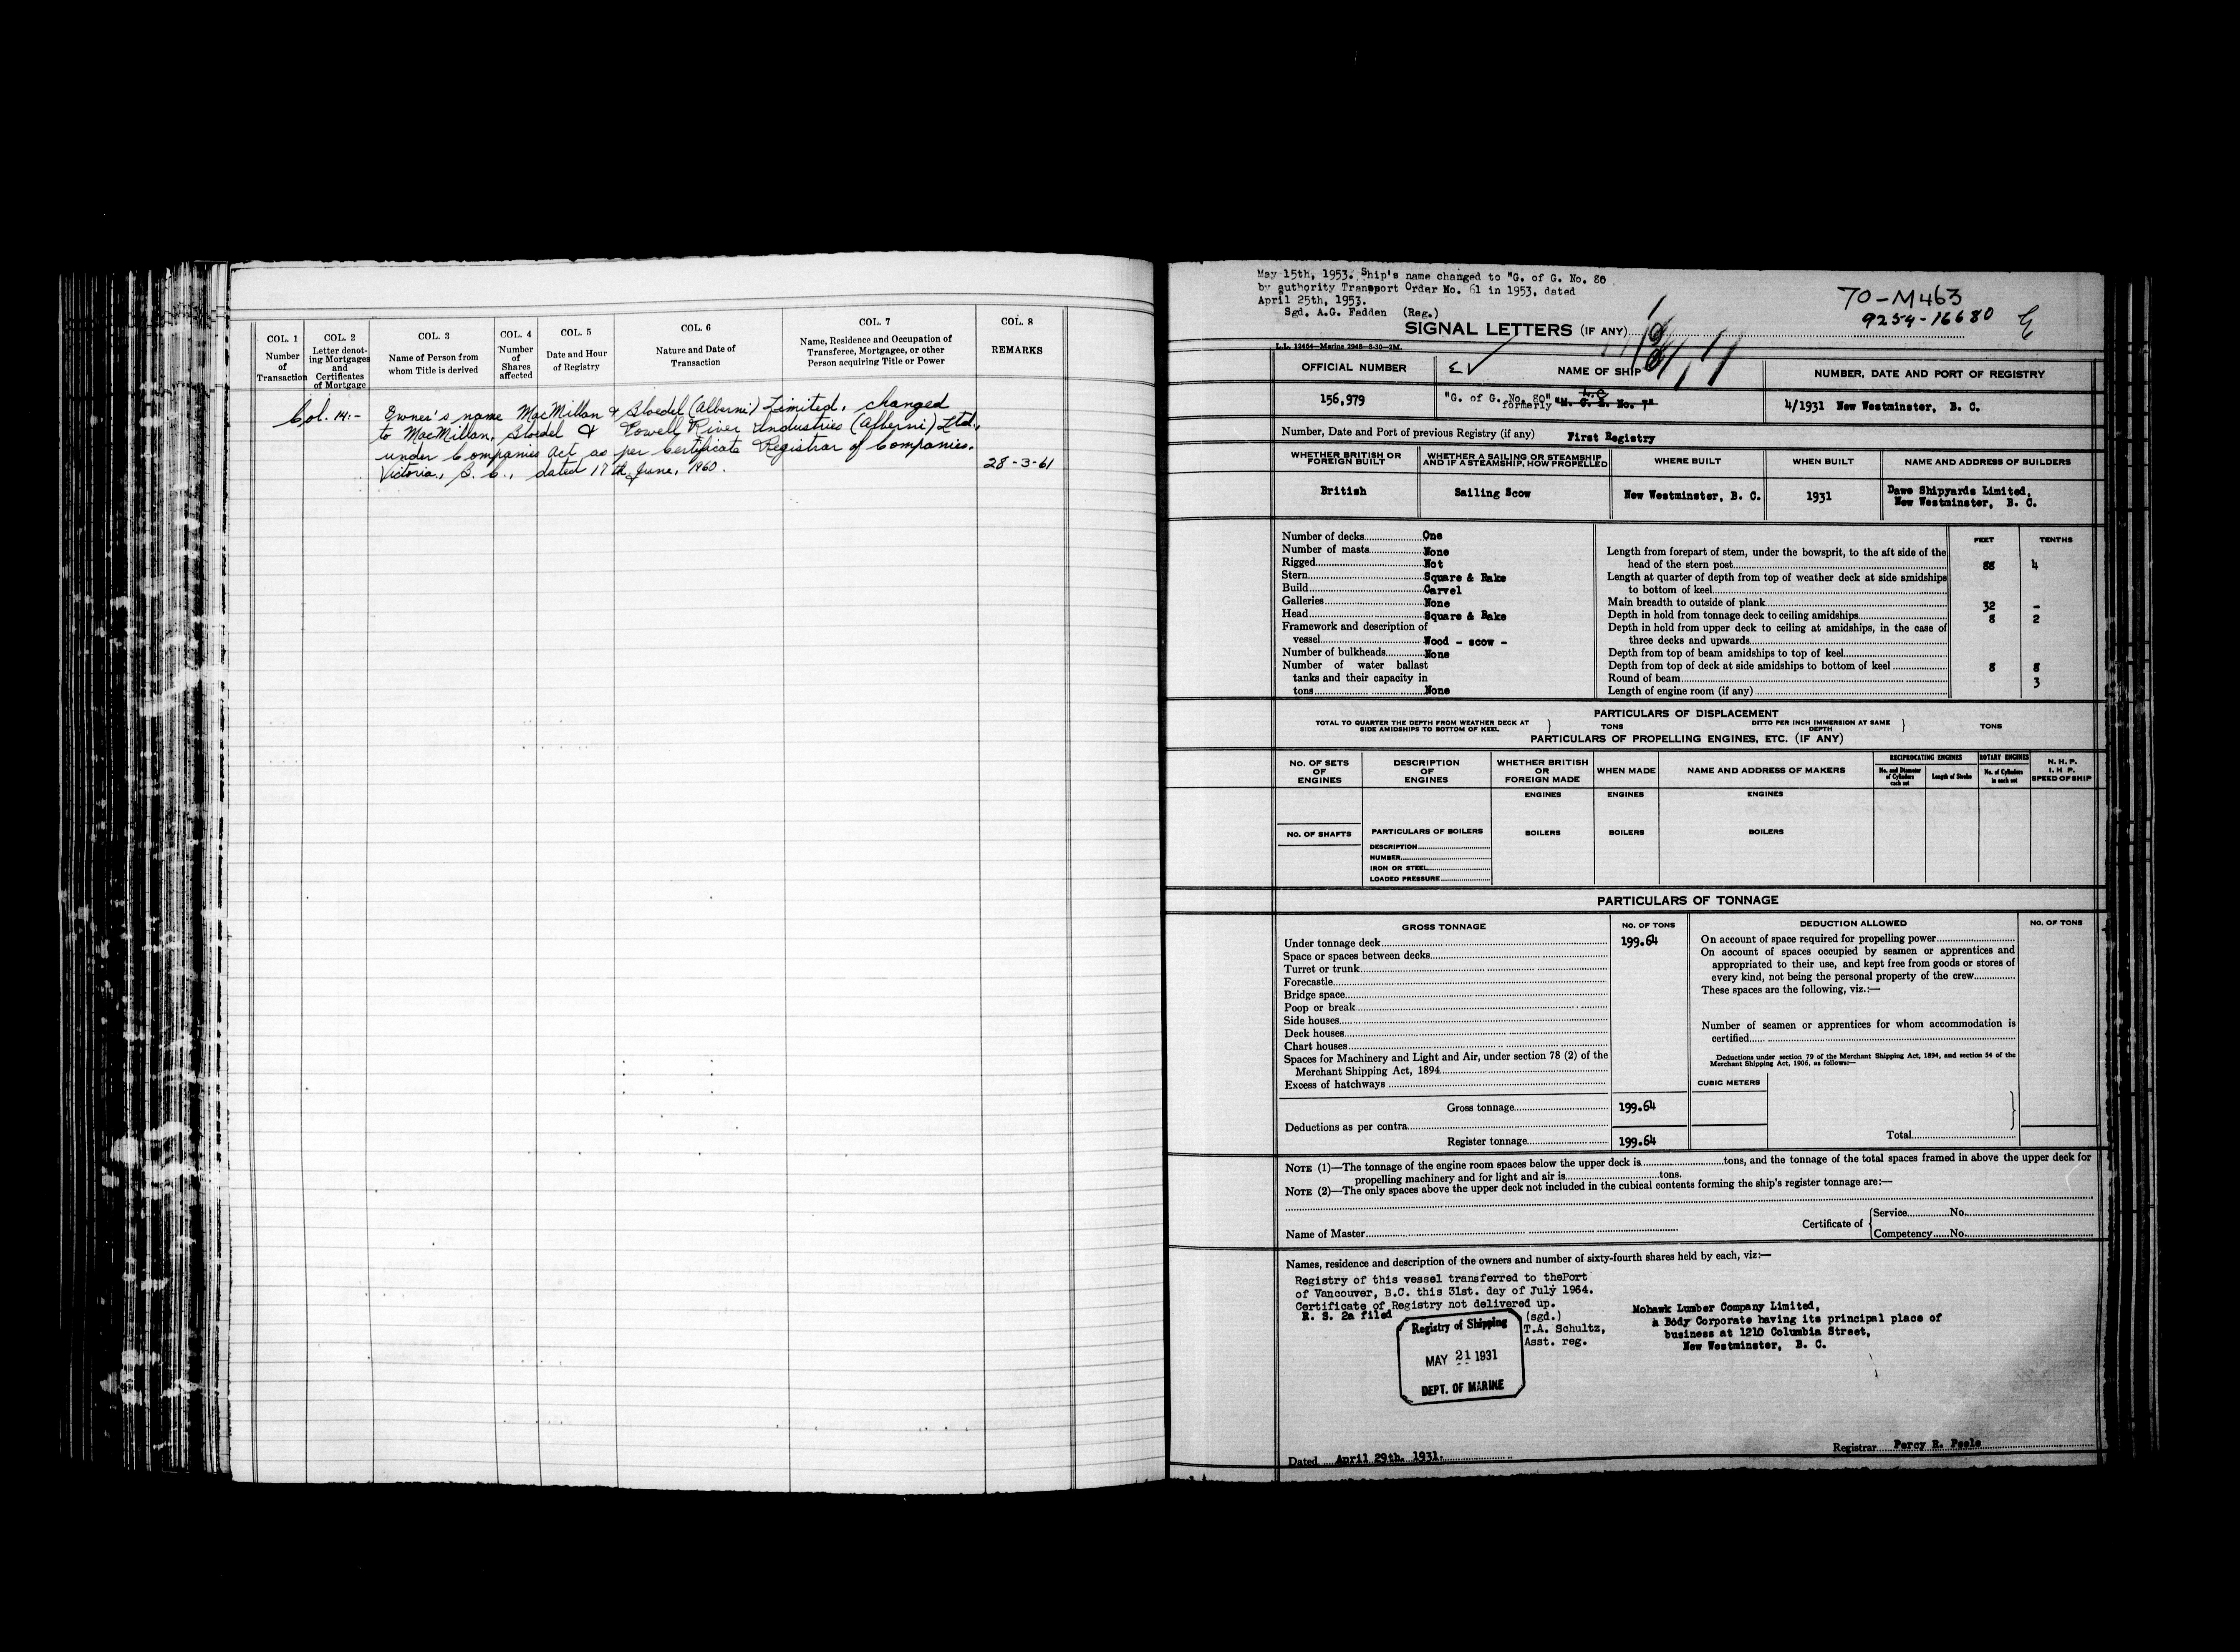 COL. 1
Number
of
Transaction
COL. 2
Letter denot-
ing Mortgages
and
Certificates
of Mortgage
COL. 3
Name of Person from
whom Title is derived
COL. 4
Number
of
Shares
affected
COL. 5
Date and Hour
of Registry
COL. 6
Nature and Date of
Transaction
COL. 7
Name, Residence and Occupation of
Transferee, Mortgagee, or other
Person acquiring Title or Power
COL. 8
REMARKS
Col. 14:- Owner's name MacMillan & Bloedel (Alberni) Limited, changed
to MacMillan, Bloedel & Powell River Industries (Alberni) Ltd.,
under Companies Act as per Certificate Registrar of Companies.
Victoria, B. C., dated 17th June, 1960. 28-3-61
May 15th, 1953. Ship's name changed to "G. of G. No. 80
by authority Transport Order No. 61 in 1953, dated
April 25th, 1953.
Sgd. A.G. Fadden (Reg.)
70-M463
9254-16680
SIGNAL LETTERS (IF ANY)
L.L. 12464—Marine 2945—5-30—2M.
OFFICIAL NUMBER
NAME OF SHIP
NUMBER, DATE AND PORT OF REGISTRY
156,979
"G. of G. No. 80"
formerly
No. 7"
4/1931 New Westminster, B. C.
Number, Date and Port of previous Registry (if any) First Registry
WHETHER BRITISH OR
FOREIGN BUILT
WHETHER A SAILING OR STEAMSHIP
AND IF A STEAMSHIP, HOW PROPELLED
WHERE BUILT
WHEN BUILT
NAME AND ADDRESS OF BUILDERS
British
Sailing Scow
New Westminster, B. C.
1931
Dawe Shipyards Limited,
New Westminster, B. C.
Number of decks One
Number of masts None
Rigged Not
Stern Square & Rake
Build Carvel
Galleries None
Head Square & Rake
Framework and description of
vessel Wood - scow -
Number of bulkheads None
Number of water ballast
tanks and their capacity in
tons None
FEET TENTHS
Length from forepart of stem, under the bowsprit, to the aft side of the
head of the stern post 88 4
Length at quarter of depth from top of weather deck at side amidships
to bottom of keel
Main breadth to outside of plank 32 -
Depth in hold from tonnage deck to ceiling amidships 8 2
Depth in hold from upper deck to ceiling at amidships, in the case of
three decks and upwards
Depth from top of beam amidships to top of keel
Depth from top of deck at side amidships to bottom of keel 8 8
Round of beam 3
Length of engine room (if any)
PARTICULARS OF DISPLACEMENT
TOTAL TO QUARTER THE DEPTH FROM WEATHER DECK AT
SIDE AMIDSHIPS TO BOTTOM OF KEEL
TONS
DITTO PER INCH IMMERSION AT SAME
DEPTH
TONS
PARTICULARS OF PROPELLING ENGINES, ETC. (IF ANY)
No. OF SETS
OF
ENGINES
DESCRIPTION
OF
ENGINES
WHETHER BRITISH
OR
FOREIGN MADE
WHEN MADE
NAME AND ADDRESS OF MAKERS
RECIPROCATING ENGINES
No. and Diameter
of Cylinders
each set
Length of Stroke
ROTARY ENGINES
No. of Cylinders
in each set
N. H. P.
I. H P.
SPEED OF SHIP
ENGINES ENGINES ENGINES
No. OF SHAFTS
PARTICULARS OF BOILERS
BOILERS BOILERS BOILERS
DESCRIPTION
NUMBER
IRON OR STEEL
LOADED PRESSURE
PARTICULARS OF TONNAGE
GROSS TONNAGE
No. OF TONS
Under tonnage deck 199.64
Space or spaces between decks
Turret or trunk
Forecastle
Bridge space
Poop or break
Side houses
Deck houses
Chart houses
Spaces for Machinery and Light and Air, under section 78 (2) of the
Merchant Shipping Act, 1894
Excess of hatchways
Gross tonnage 199.64
Deductions as per contra
Register tonnage 199.64
DEDUCTION ALLOWED
No. OF TONS
On account of space required for propelling power
On account of spaces occupied by seamen or apprentices and
appropriated to their use, and kept free from goods or stores of
every kind, not being the personal property of the crew
These spaces are the following, viz.:—
Number of seamen or apprentices for whom accommodation is
certified
Deductions under section 79 of the Merchant Shipping Act, 1894, and section 54 of the
Merchant Shipping Act, 1906, as follows:—
CUBIC METERS
Total
NOTE (1)—The tonnage of the engine room spaces below the upper deck is tons, and the tonnage of the total spaces framed in above the upper deck for
propelling machinery and for light and air is tons.
NOTE (2)—The only spaces above the upper deck not included in the cubical contents forming the ship's register tonnage are:—
Name of Master
Certificate of
Service No.
Competency No.
Names, residence and description of the owners and number of sixty-fourth shares held by each, viz:—
Registry of this vessel transferred to thePort
of Vancouver, B.C. this 31st. day of July 1964.
Certificate of Registry not delivered up.
R. S. 2a filed
(sgd.)
T.A. Schultz,
Asst. reg.
Registry of Shipping
MAY 21 1931
DEPT. OF MARINE
Mohawk Lumber Company Limited,
a Body Corporate having its principal place of
business at 1210 Columbia Street,
New Westminster, B. C.
Dated April 29th. 1931.
Registrar Percy R. Peele